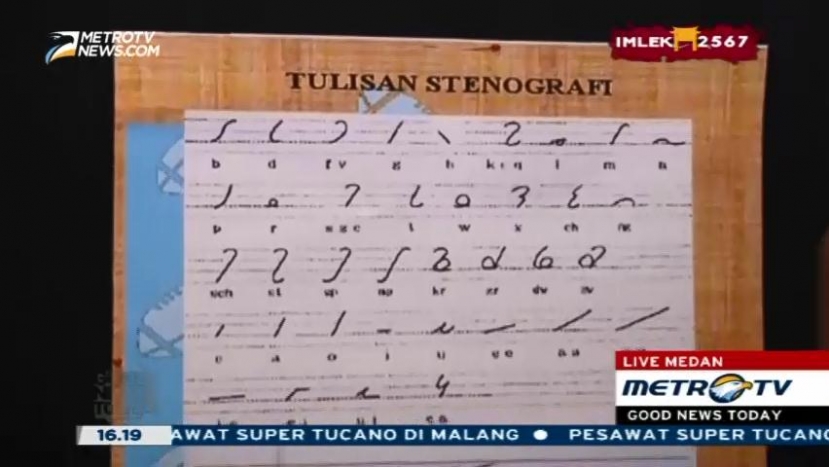 METROTV
NEWS.COM
IMLEK 2567
TULISAN STENOGRAFI
b d f v g h k c q l m n
p r s z c t w x ch ng
sch st sp ng kr zr dw zw
e a o i u ee aa
LIVE MEDAN
METRO TV
GOOD NEWS TODAY
16.19 AWAT SUPER TUCANO DI MALANG ● PESAWAT SUPER TUCANO